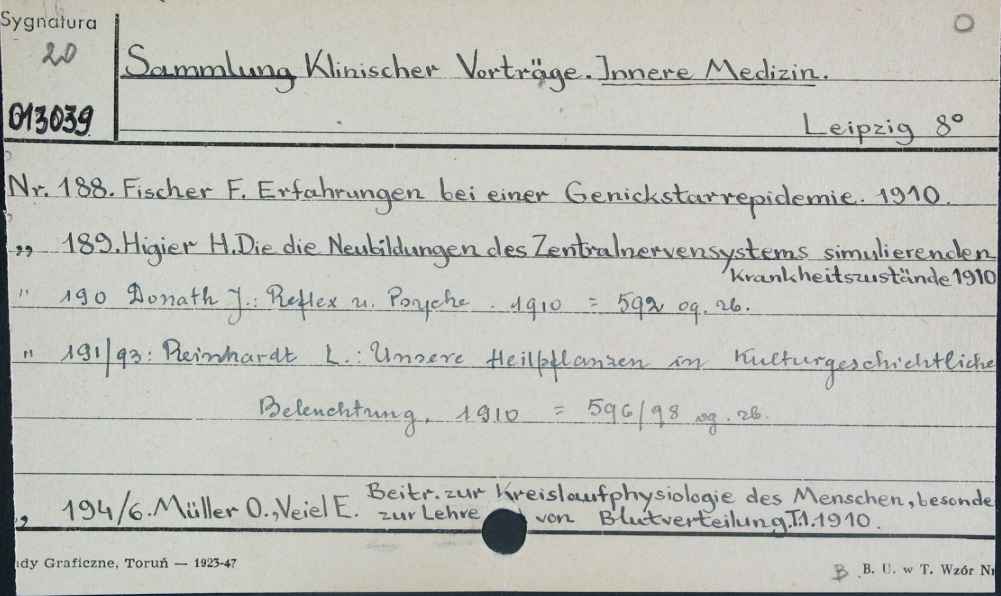 Sygnatura
20
Sammlung Klinischer Vorträge. Innere Medizin.
013039
Leipzig 8°
Nr. 188. Fischer F. Erfahrungen bei einer Genickstarrepidemie. 1910.
„ 189. Higier H. Die die Neubildungen des Zentralnervensystems simulierenden
Krankheitszustände 1910
" 190 Donath J.: Reflex u. Psyche. 1910 = 592 og. zb.
" 191/93: Reinhardt L.: Unsere Heilpflanzen in Kulturgeschichtliche
Beleuchtung. 1910 = 596/98 og. zb.
„ 194/6. Müller O., Veiel E. Beitr. zur Kreislaufphysiologie des Menschen, besonde
zur Lehre von Blutverteilung. T.1. 1910.
dy Graficzne, Toruń — 1923-47
B B. U. w T. Wzór Nr